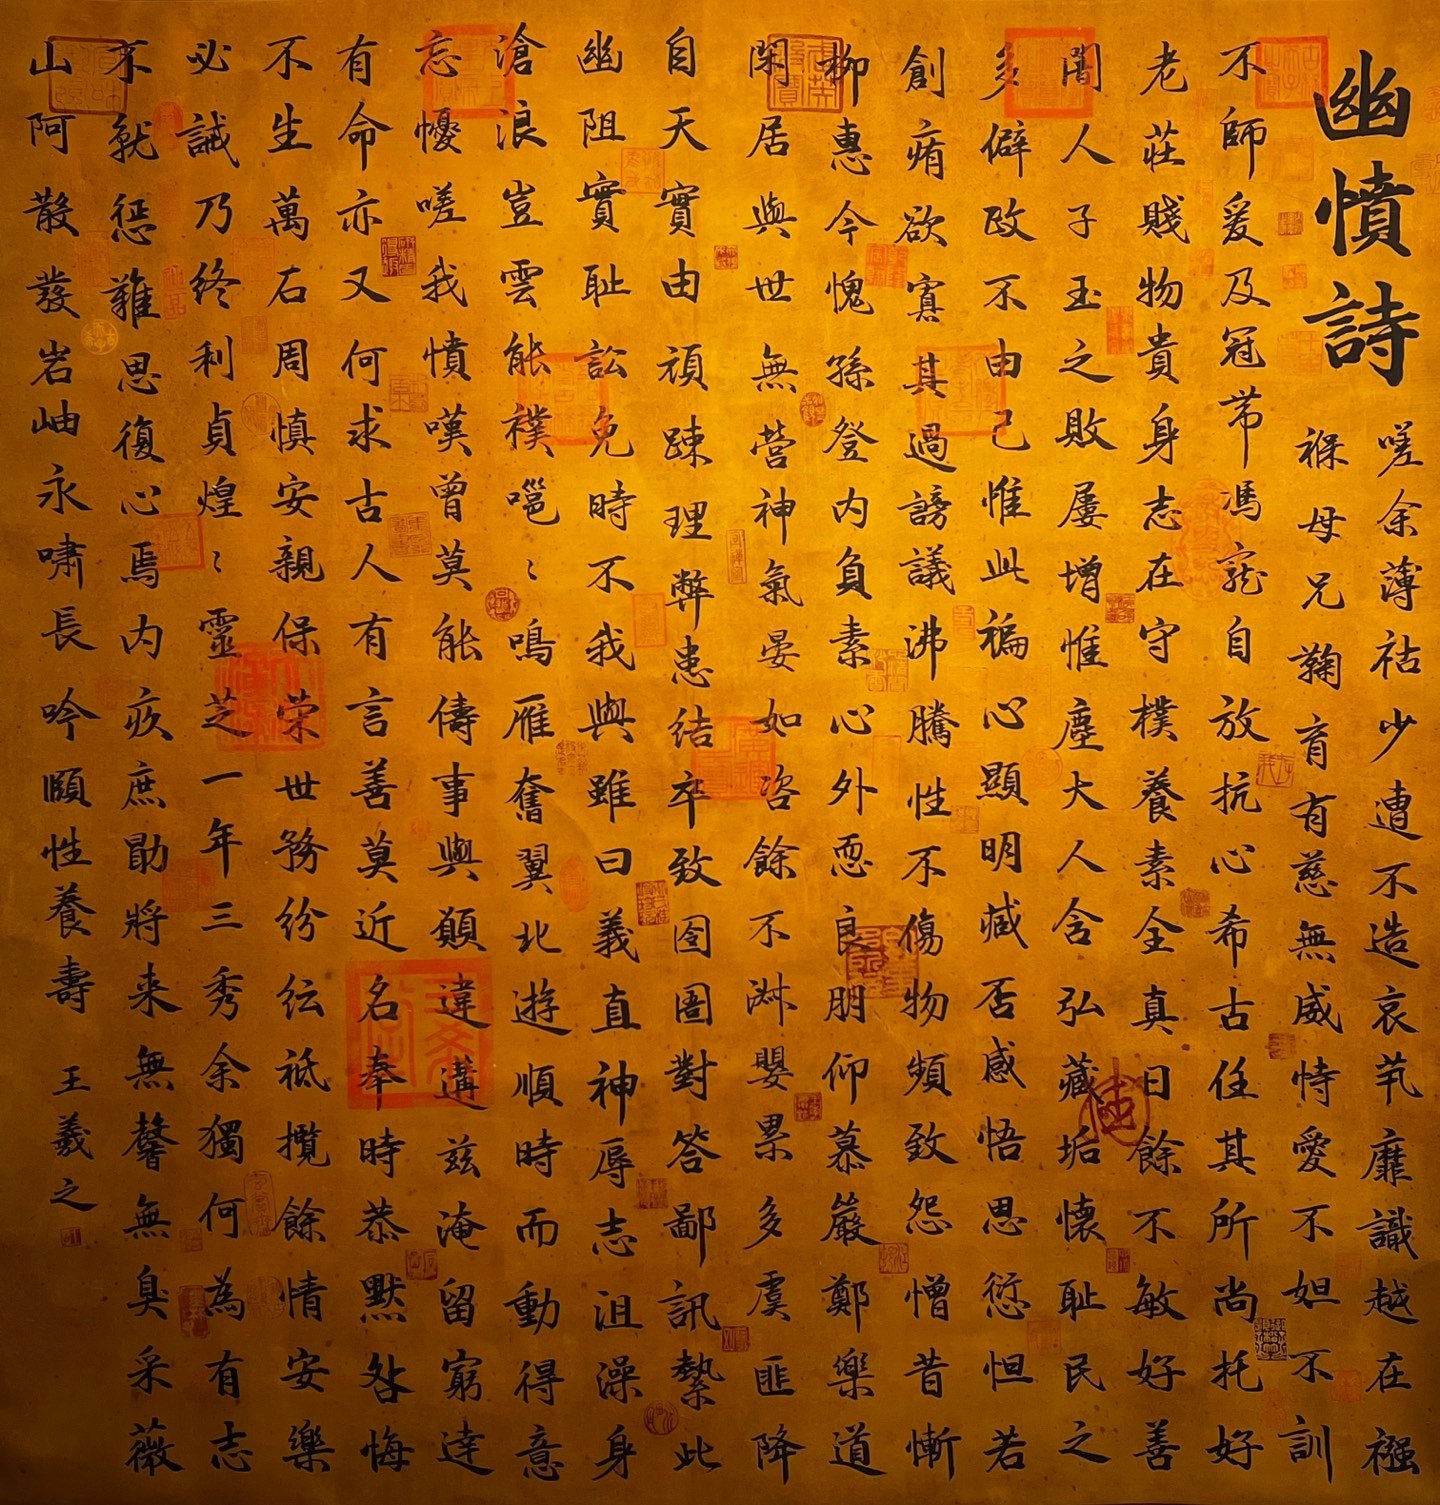 幽憤詩
嗟余薄祜少遭不造哀茕靡識越在襁
褓母兄鞠育有慈無威恃愛不妲不訓
不師爰及冠帶馮寵自放抗心希古任其所尚托好
老莊賤物貴身志在守樸養素全真曰餘不敏好善
闇人子玉之敗屢增惟塵大人含弘藏垢懷耻民之
多僻政不由己惟此褊心顯明臧否感悟思愆怛若
創痏欲寡其過謗議沸騰性不傷物頻致怨憎昔慚
柳惠今愧孫登内負素心外恧良朋仰慕嚴鄭樂道
閑居與世無營神氣晏如咨餘不淑嬰累多虞匪降
自天實由頑疎理弊患結卒致囹圄對答鄙訊縶此
幽阻實耻訟免時不我與雖曰義直神辱志沮澡身
滄浪豈雲能襆嗈〻鳴雁奮翼北遊順時而動得意
忘憂嗟我憤嘆曾莫能儔事與願違遘兹淹留窮達
有命亦又何求古人有言善莫近名奉時恭默咎悔
不生萬石周慎安親保荣世務紛紜祗攪餘情安樂
必誡乃終利貞煌〻靈芝一年三秀余獨何為有志
不就懲難思復心焉内疚庶勖將来無馨無臭采薇
山阿散發岩岫永嘯長吟頤性養壽 王羲之